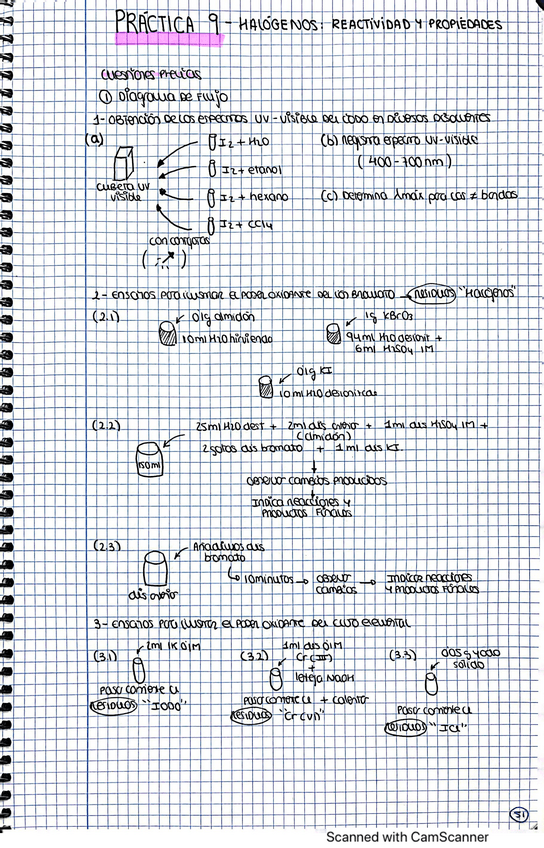 PRÁCTICA 9 - HALÓGENOS: REACTIVIDAD Y PROPIEDADES
CUESTIONES PREVIAS
① DIAGRAMA DE FLUJO
1- OBTENCIÓN DE LOS ESPECTROS UV-VISIBLE DEL IODO EN DIVERSOS DISOLVENTES
(a)
I2 + H2O
I2 + etanol
I2 + hexano
I2 + CCl4
CUBETA UV
VISIBLE
con campana
(b) registra espectro UV-visible
(400-700nm)
(c) Determina λmáx para las ≠ bandas
2- ENSAYOS PARA ILUSTRAR EL PODER OXIDANTE DEL ION BROMATO → RESIDUOS "HALÓGENOS"
(2.1)
0,1g almidón
10ml H2O hirviendo
1g KBrO3
94ml H2O desionit +
6ml H2SO4 1M
0,1g KI
10ml H2O desionizada
(2.2)
25ml H2O dest + 2ml dis anterior + 1ml dis H2SO4 1M +
(almidón)
2 gotas dis bromato + 1ml dis KI
150ml
observar cambios producidos
Indica reacciones y
PRODUCTOS FINALES
(2.3)
Añadimos dis
bromato
10 minutos → observar
cambios
→ Indicar reacciones
y PRODUCTOS FINALES
dis anterior
3- ENSAYOS PARA ILUSTRAR EL PODER OXIDANTE DEL CLORO ELEMENTAL
(3.1)
2ml IK 0,1M
pasar corriente Cl
RESIDUOS "IODO"
(3.2)
1ml dis 0,1M
Cr(III)
+
lenteja NaOH
pasar corriente Cl + calentar
RESIDUOS "Cr(VI)"
(3.3)
0,05g yodo
sólido
pasar corriente Cl
RESIDUOS "ICl"
51
Scanned with CamScanner